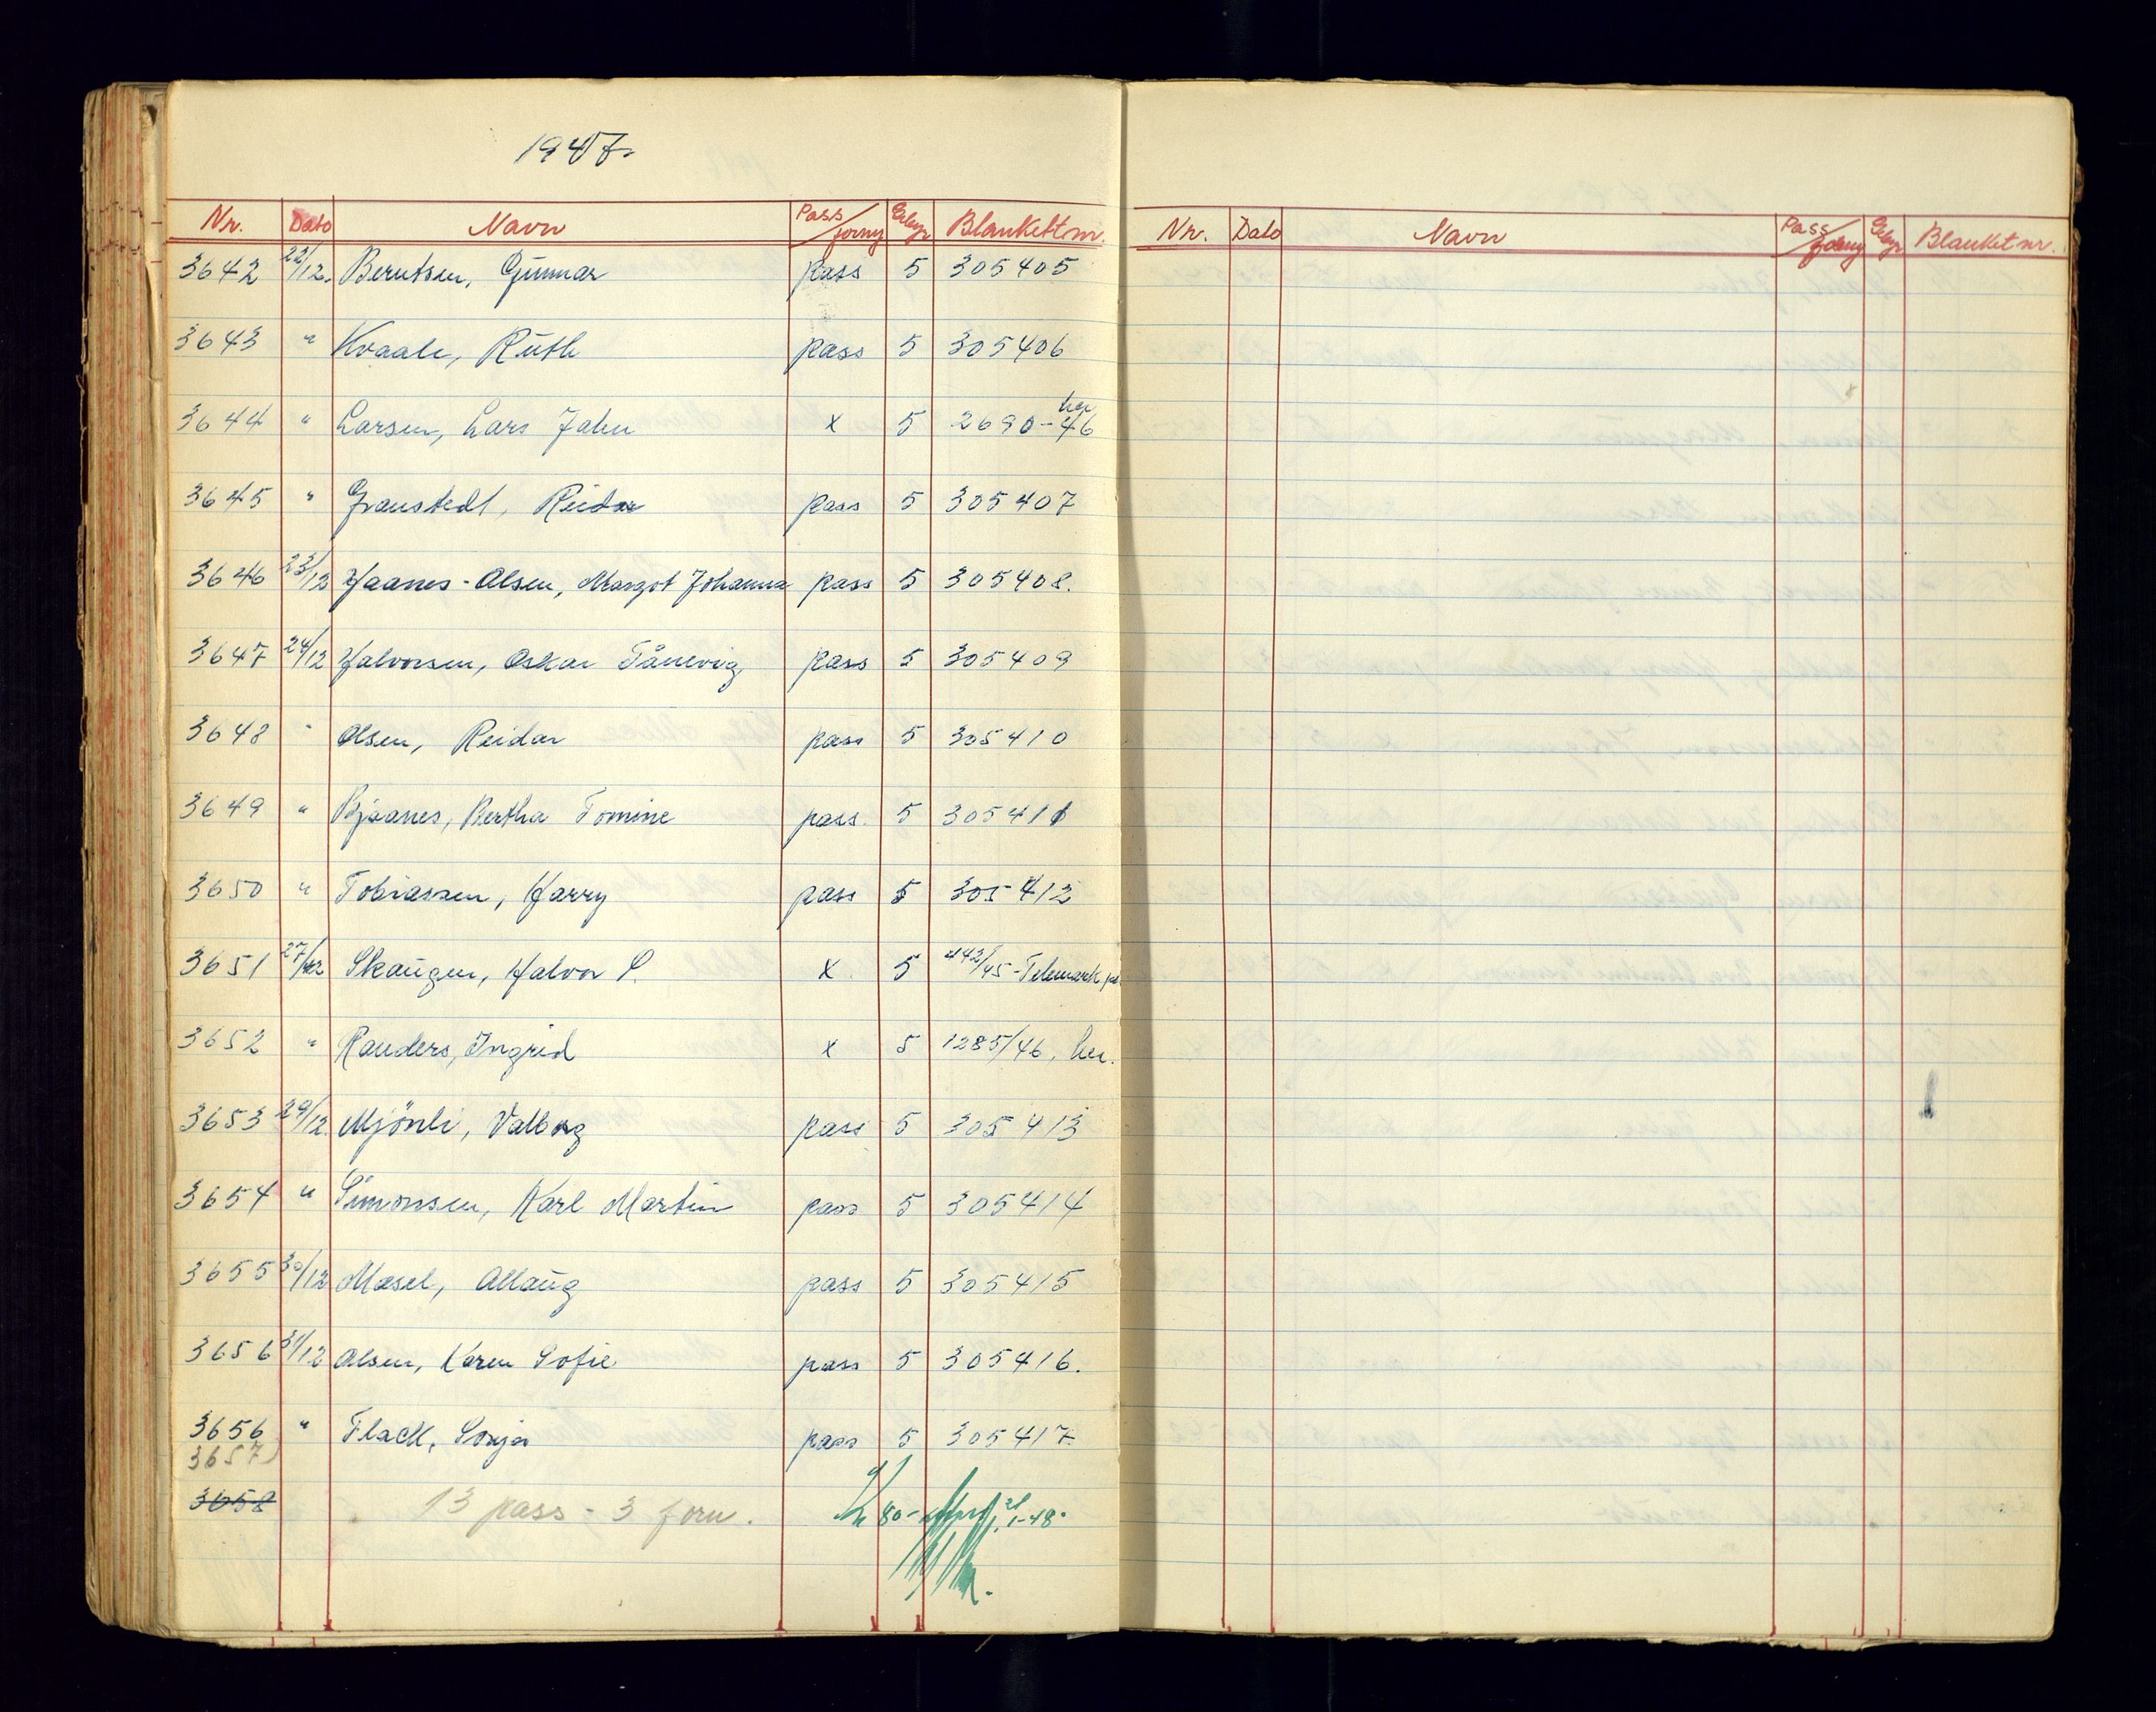 1947.
Nr. Dato Navn Pass/forny Gebyr Blankettnr.
3642 22/12. Berntsen, Gunnar pass 5 305405
3643 " Kvaale, Ruth pass 5 305406
3644 " Larsen, Lars John x 5 2690-46 her
3645 " Granstedt, Reidar pass 5 305407
3646 23/12 Haanes-Olsen, Margot Johanna pass 5 305408.
3647 24/12 Halvorsen, Oskar Tånevig pass 5 305409
3648 " Olsen, Reidar pass 5 305410
3649 " Bjaanes, Bertha Tomine pass. 5 305411
3650 " Tobiassen, Harry pass 5 305412
3651 27/12 Skaugen, Halvor S. x 5 442/45-Telemark
3652 " Randers, Ingrid x 5 1285/46, her.
3653 29/12. Mjönli, Valborg pass 5 305413
3654 " Simonsen, Karl Martin pass 5 305414
3655 30/12 Mæsel, Allaug pass 5 305415
3656 31/12 Olsen, Karen Sofie pass 5 305416.
3656 " Flack, Sonja pass 5 305417.
3657
3658 13 pass - 3 forn. 80- 2/1-48.
Nr. Dato Navn Pass/forny Gebyr Blanketnr.